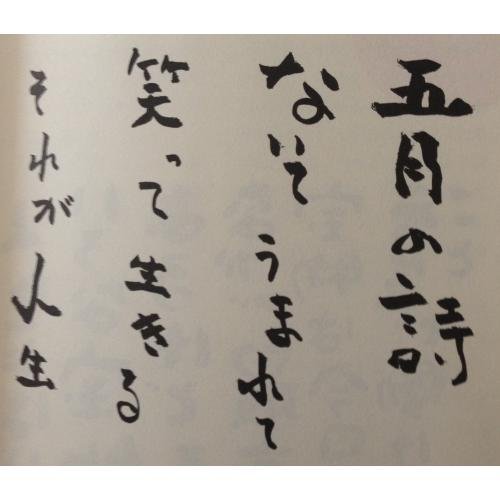 五月の詩
ないてうまれて
笑って生きる
それが人生